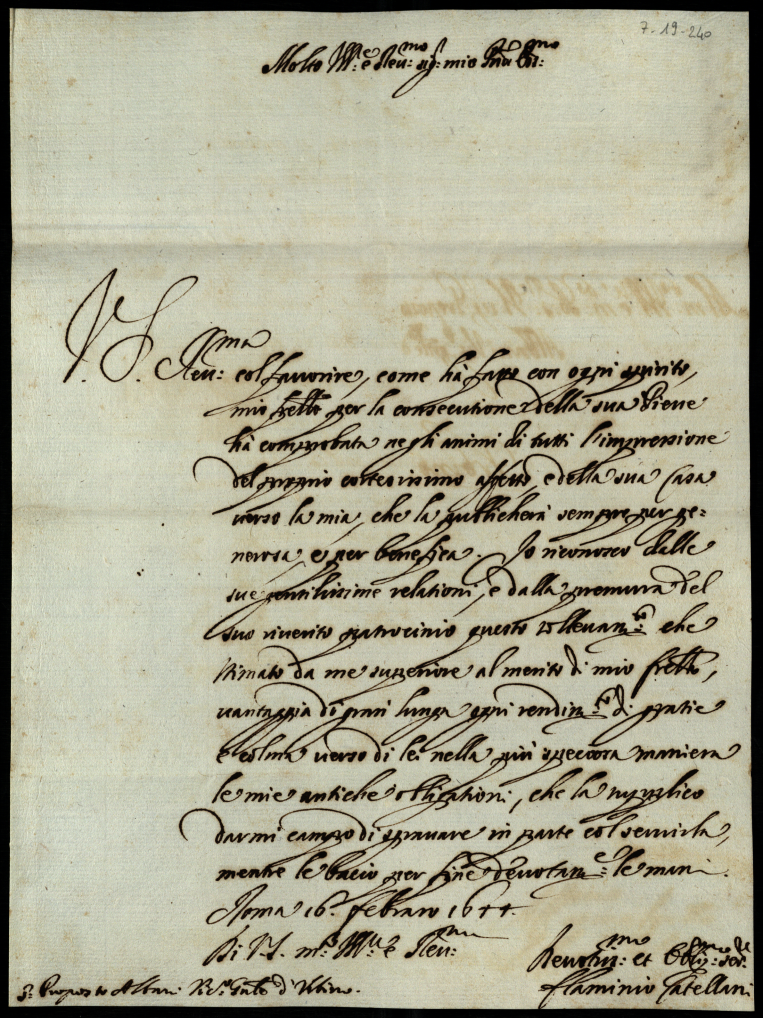 7-19-240
Molto Ill:e e Reu:mo sig:r mio P̃ron Col:mo
V. S. Reu:ma col fauorire, come hà fatto con ogni spirito,
mio frello per la consecutione della sua Pieue
hà comprobata negli animi di tutti l'impressione
del proprio cortesissimo affetto, e della sua Casa
uerso la mia, che la publicherà sempre per ge=
nerosa, e per benefica. Io riconosco dalle
sue gentilissime relationi, e dalla premura del
suo riuerito patrocinio questo solleuam:to che
stimato da me superiore al merito di mio frello,
uantaggia di gran lunga ogni rendim:to di gratie
e colma uerso di lei nella più speciosa maniera
le mie antiche obligationi, che la supplico
darmi campo di sgrauare in parte col seruirla,
mentre le bacio per fine deuotam:e le mani.
Roma 16. febraro 1644.
Di V.S. m:to Ill:e e Reu:ma
Deuotiss:mo et Oblig:mo ser:
flaminio Catellani
S:r Proposto Albani Vic:o Gn̄le d'Vrbino.